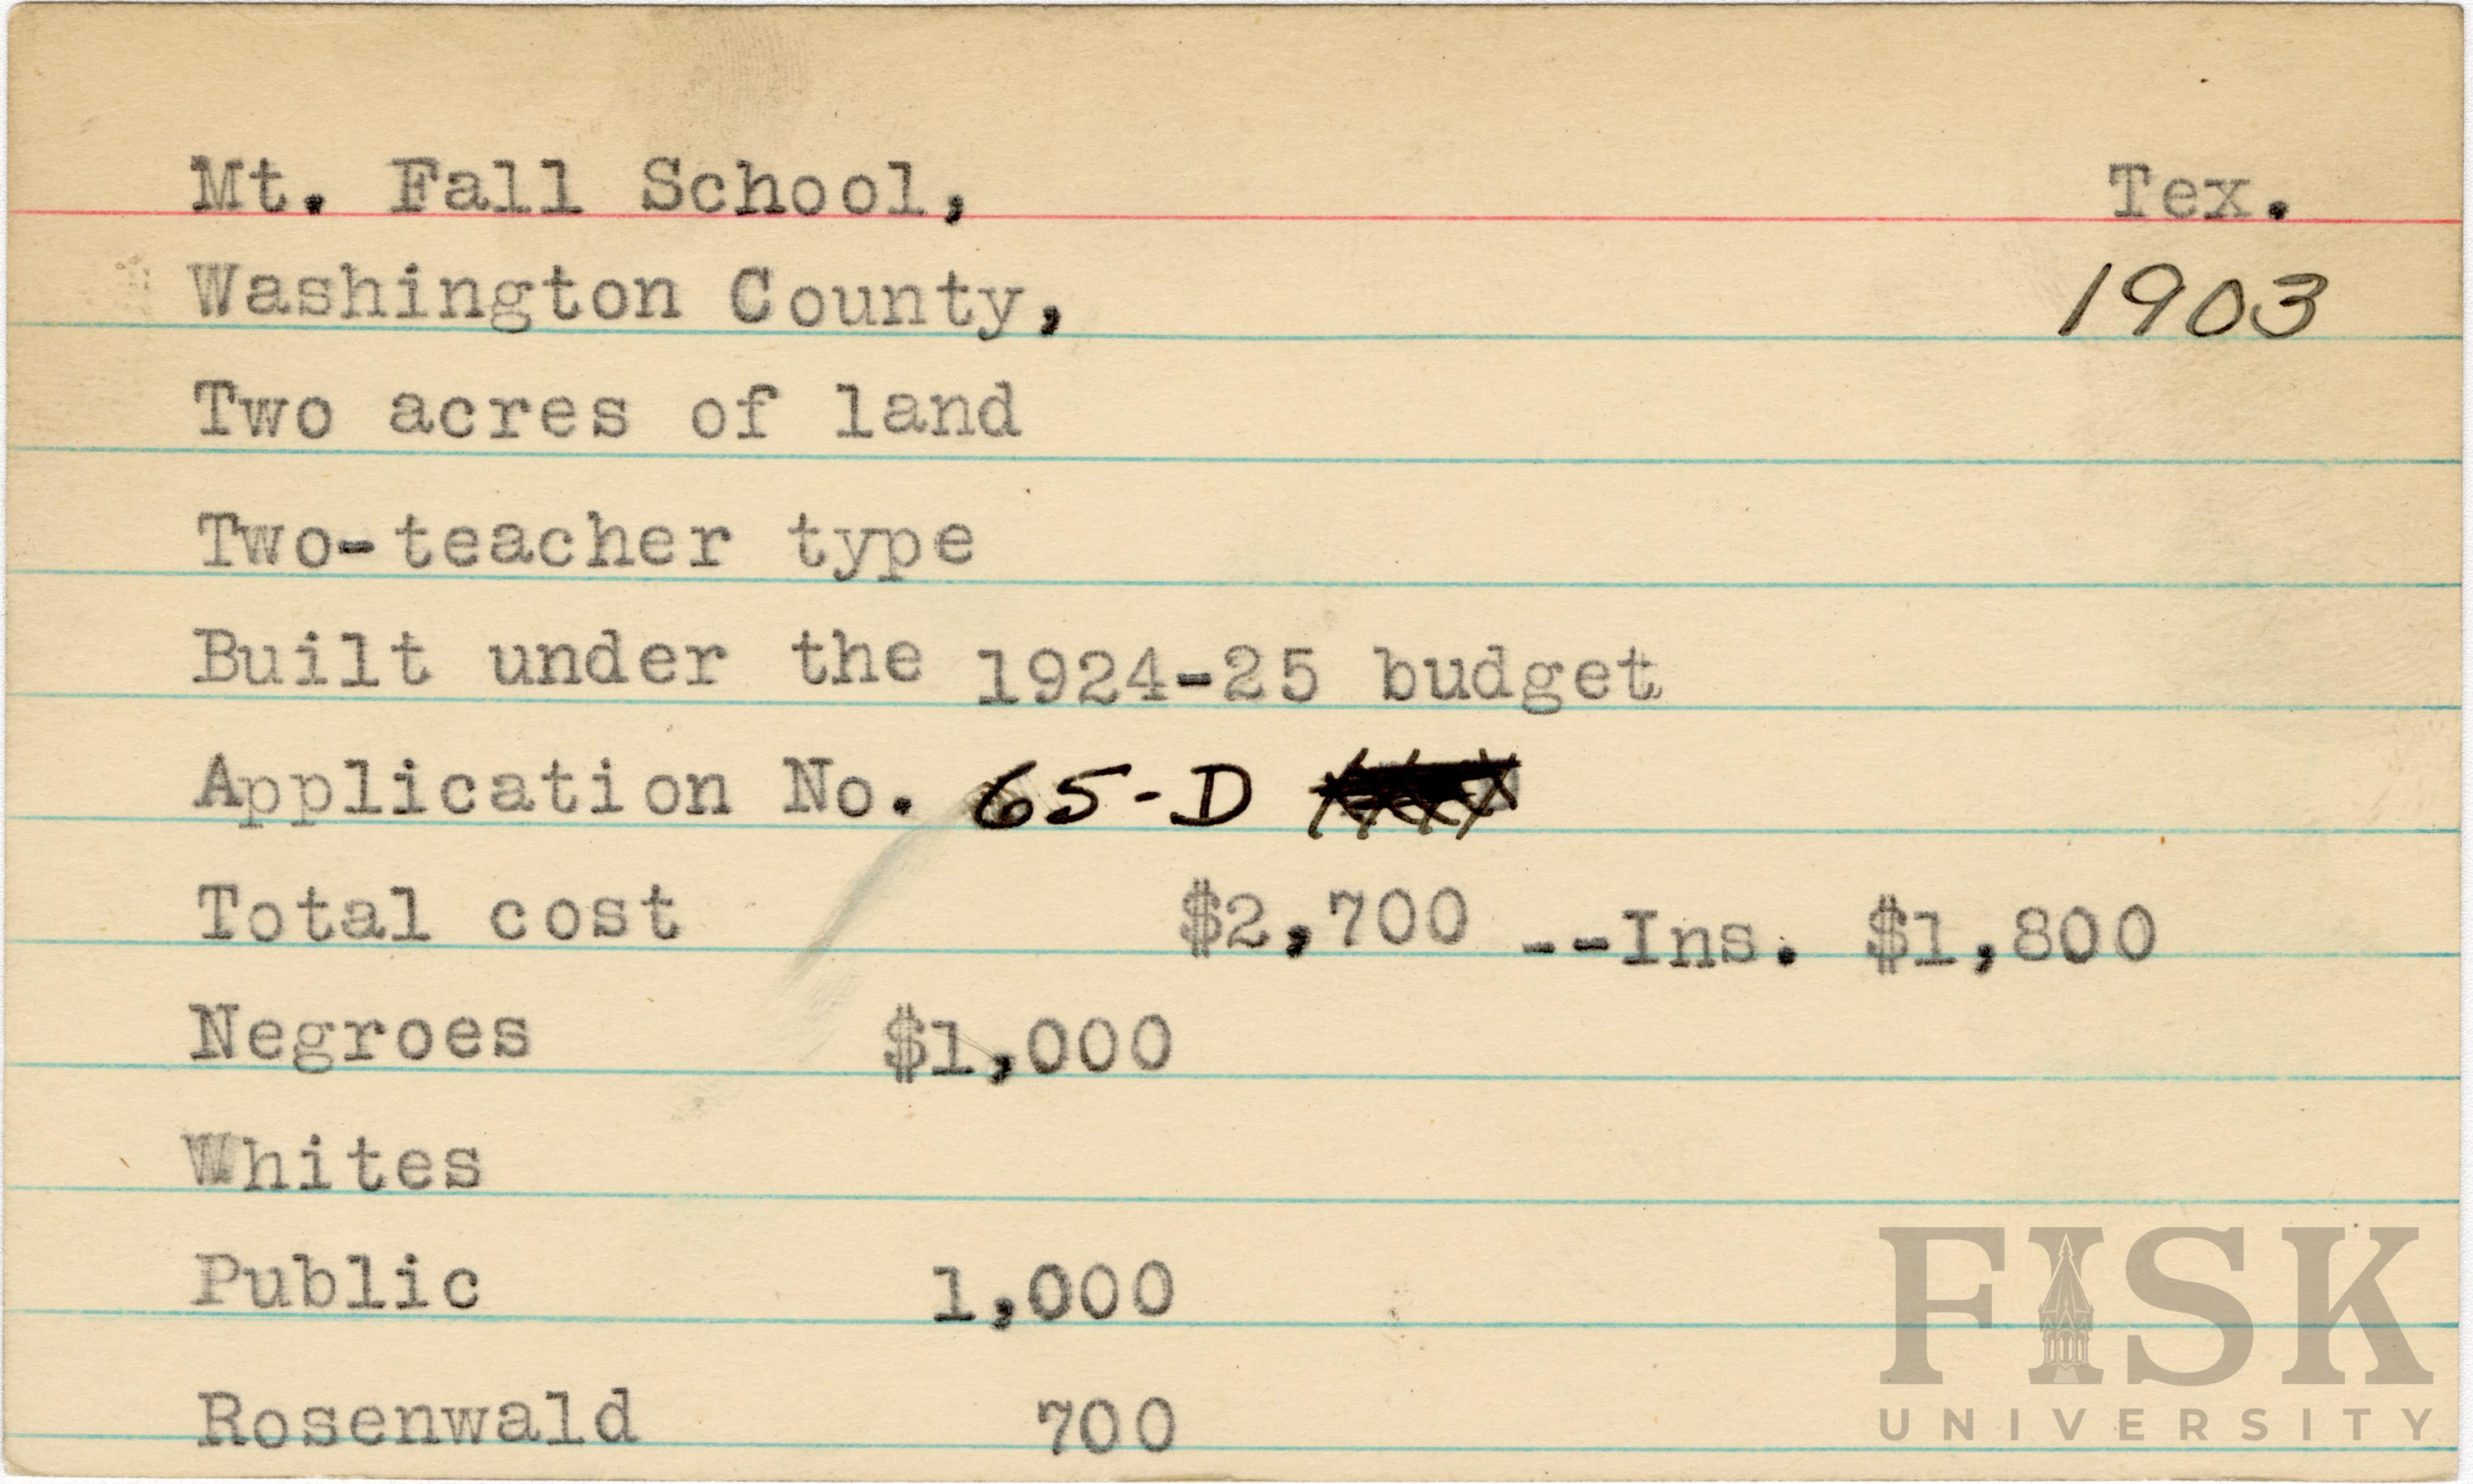 Mt. Fall School, Tex.
Washington County, 1903
Two acres of land
Two-teacher type
Built under the 1924-25 budget
Application No. 65-D
Total cost $2,700 --Ins. $1,800
Negroes $1,000
Whites
Public 1,000
Rosenwald 700
FISK
UNIVERSITY